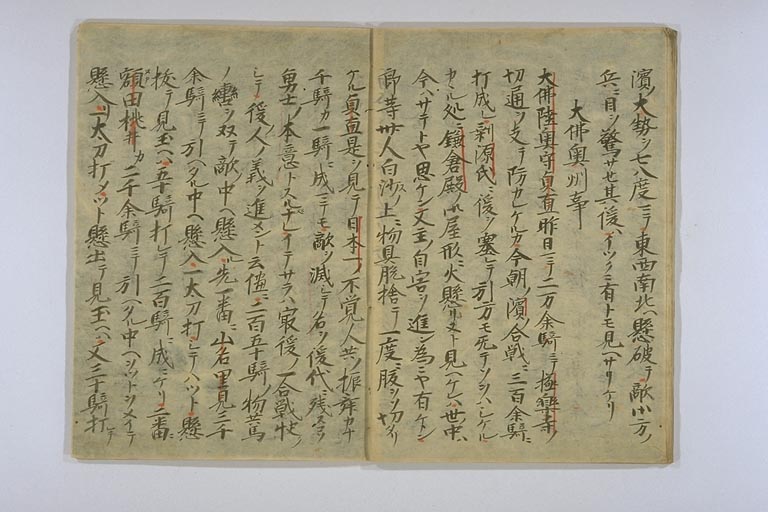 濱ノ大勢ヲ七八度ニテ東西南北ヘ懸破テ敵小方ノ
兵ニ目ヲ驚サせ其後ハイツクニ有トモ見ヘサリケリ
大佛奥州事
大佛陸奥守貞直昨日ニテ二万余騎ニテ極樂寺ノ
切通ヲ支テ防カレケルカ今朝ノ濱ノ合戦ニ三百余騎ニ
打成レ剰源氏ニ後ヲ塞レテ引方モ无テソヲハシケル
処ニ鎌倉殿ノ御屋形ニ火懸リヌト見ヘケレハ世ノ中
今ハサテトヤ思ケン又主ノ自害ヲ進ン為ニヤ有ケン
郎等卅人白沙ノ上ニ物具脱捨テ一度ニ腹ヲソ切タリ
ケル貞直是ヲ見テ日本一ノ不覚ノ人共ノ振舞カナ
千騎カ一騎ニ成ニテモ敵ヲ滅シテ名ヲ後代ニ残スコソ
勇士ノ本意トスルナレイテサラハ最後ノ一合戦忙シ
シテ後人ノ義ヲ進メント云儘ニ二百五十騎ノ物共馬
ノ轡ヲ双テ敵中ヘ懸入ル先一番ニ山名里見二千
余騎ニテ引ヘタル中ヘ懸入一太刀打シテハツト懸
抜テ見玉ヘハ五十騎打レテ二百騎ニ成ニケリ二番ニ
額田桃井カ二千余騎ニテ引ヘタル中ヘツツトヲメイテ
懸入一太刀打メツト懸出テ見玉ヘハ又三十騎打レテ